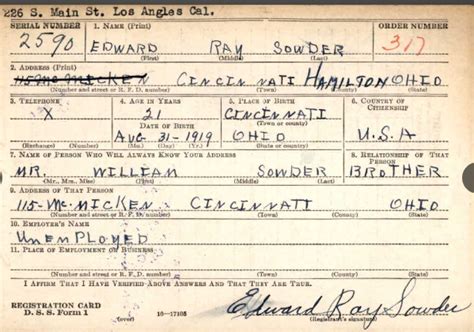 226 S. Main St. Los Angles Cal.
SERIAL NUMBER 1. NAME (Print) ORDER NUMBER
2590 EDWARD RAY SOWDER 317
(First) (Middle) (Last)
2. ADDRESS (Print)
115 McMICKEN CINCINNATI HAMILTON OHIO
(Number and street or R. F. D. number) (Town) (County) (State)
3. TELEPHONE 4. AGE IN YEARS 5. PLACE OF BIRTH 6. COUNTRY OF CITIZENSHIP
X 21 CINCINNATI
DATE OF BIRTH (Town or county)
AUG 31-1919 OHIO U.S.A
(Exchange) (Number) (Mo.) (Day) (Yr.) (State or country)
7. NAME OF PERSON WHO WILL ALWAYS KNOW YOUR ADDRESS 8. RELATIONSHIP OF THAT PERSON
MR. WILLIAM SOWDER BROTHER
(Mr., Mrs., Miss) (First) (Middle) (Last)
9. ADDRESS OF THAT PERSON
115-McMICKEN CINCINNATI OHIO
(Number and street or R. F. D. number) (Town) (County) (State)
10. EMPLOYER'S NAME
UNEMPLOYED
11. PLACE OF EMPLOYMENT OR BUSINESS
(Number and street or R. F. D. number) (Town) (County) (State)
I AFFIRM THAT I HAVE VERIFIED ABOVE ANSWERS AND THAT THEY ARE TRUE.
REGISTRATION CARD
D. S. S. Form 1 16-17105 Edward Ray Sowder